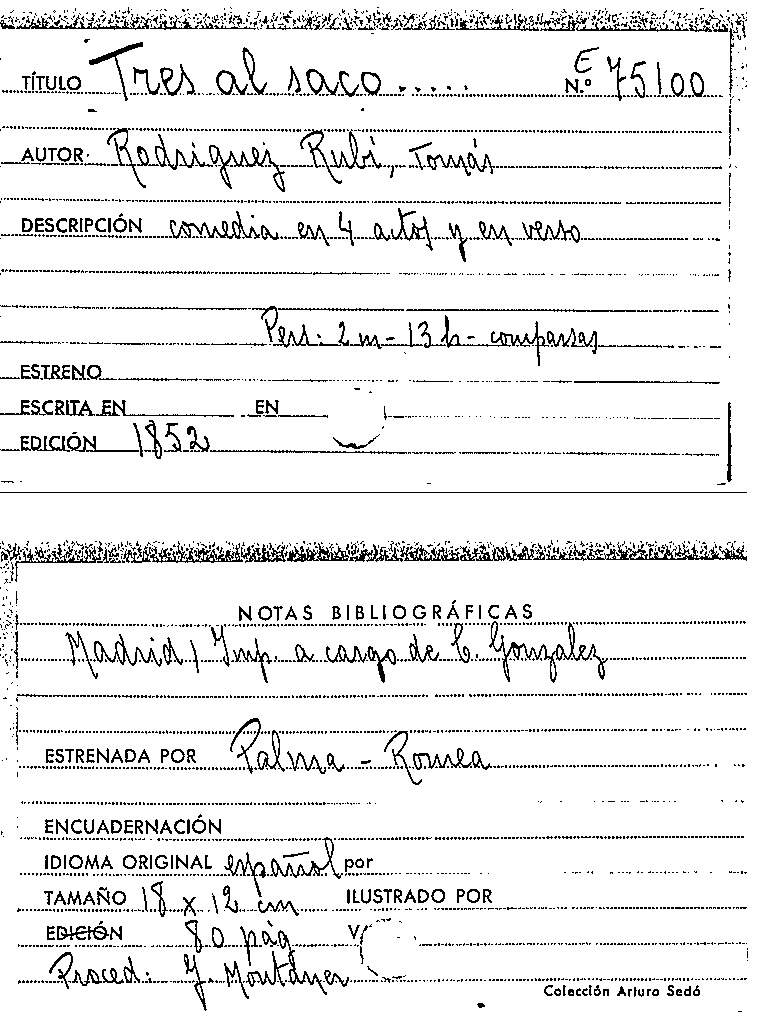 TÍTULO Tres al saco..... E N.º 75100
AUTOR· Rodriguez Rubí, Tomás
DESCRIPCIÓN comedia en 4 actos y en verso
Pers: 2 m - 13 h - comparsas
ESTRENO
ESCRITA EN EN
EDICIÓN 1852
NOTAS BIBLIOGRÁFICAS
Madrid, Imp. a cargo de C. Gonzalez
ESTRENADA POR Palma - Romea
ENCUADERNACIÓN
IDIOMA ORIGINAL español por
TAMAÑO 18 x 12 cm ILUSTRADO POR
EDICIÓN 80 pág V
Proced: Montaner
Colección Arturo Sedó